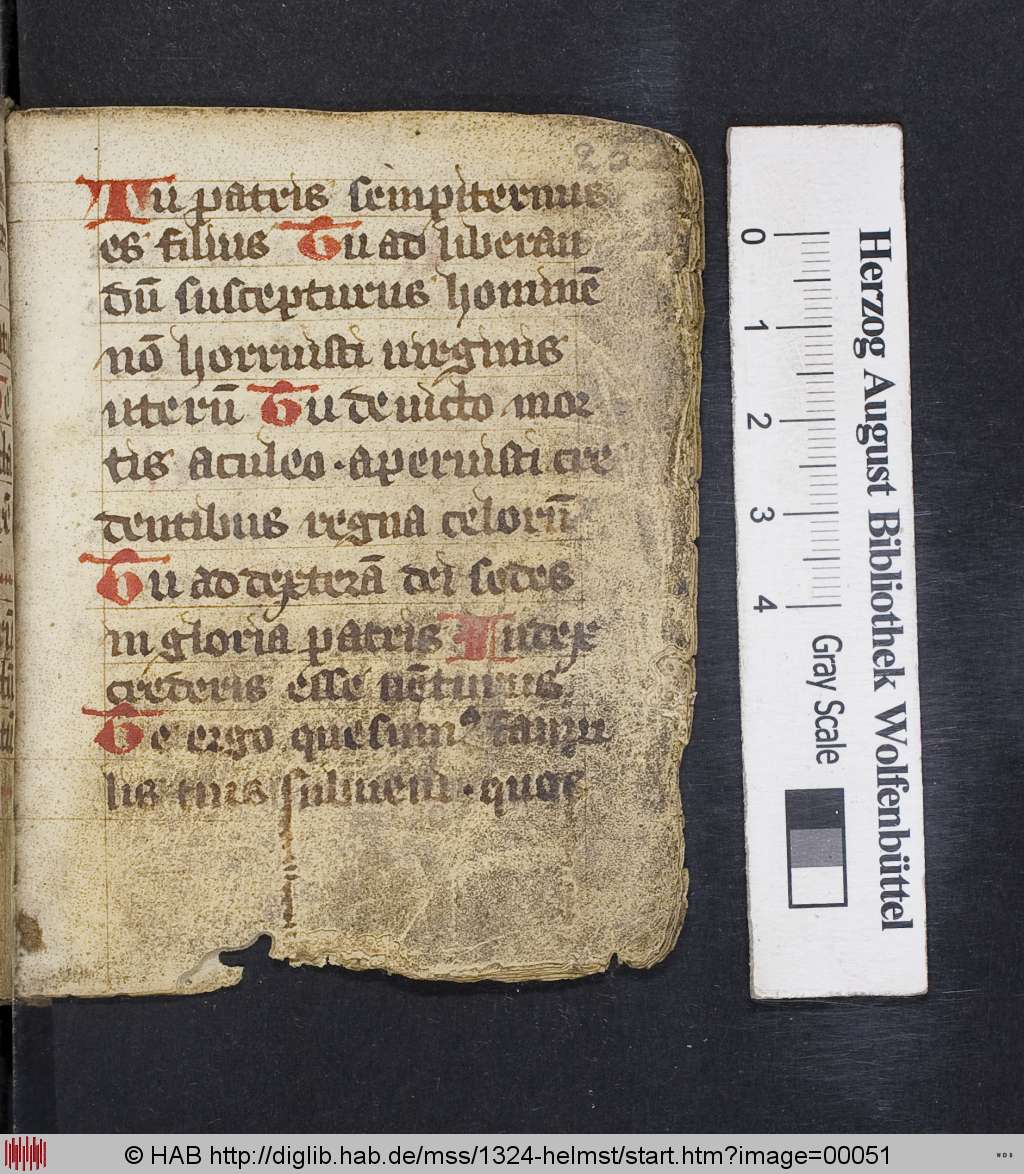 Tu patris sempiternus
es filius Tu ad liberan
dū suscepturus hominē
nō horruisti uirginis
uterū Tu deuicto mor
tis aculeo · aperuisti cre
dentibus regna celorū
Tu ad dexterā dei sedes
in gloria patris Iudex
crederis esse uēturus
Te ergo quesumꝰ famu
lis tuis subueni · quos
0 1 2 3 4
Gray Scale
Herzog August Bibliothek Wolfenbüttel
© HAB http://diglib.hab.de/mss/1324-helmst/start.htm?image=00051